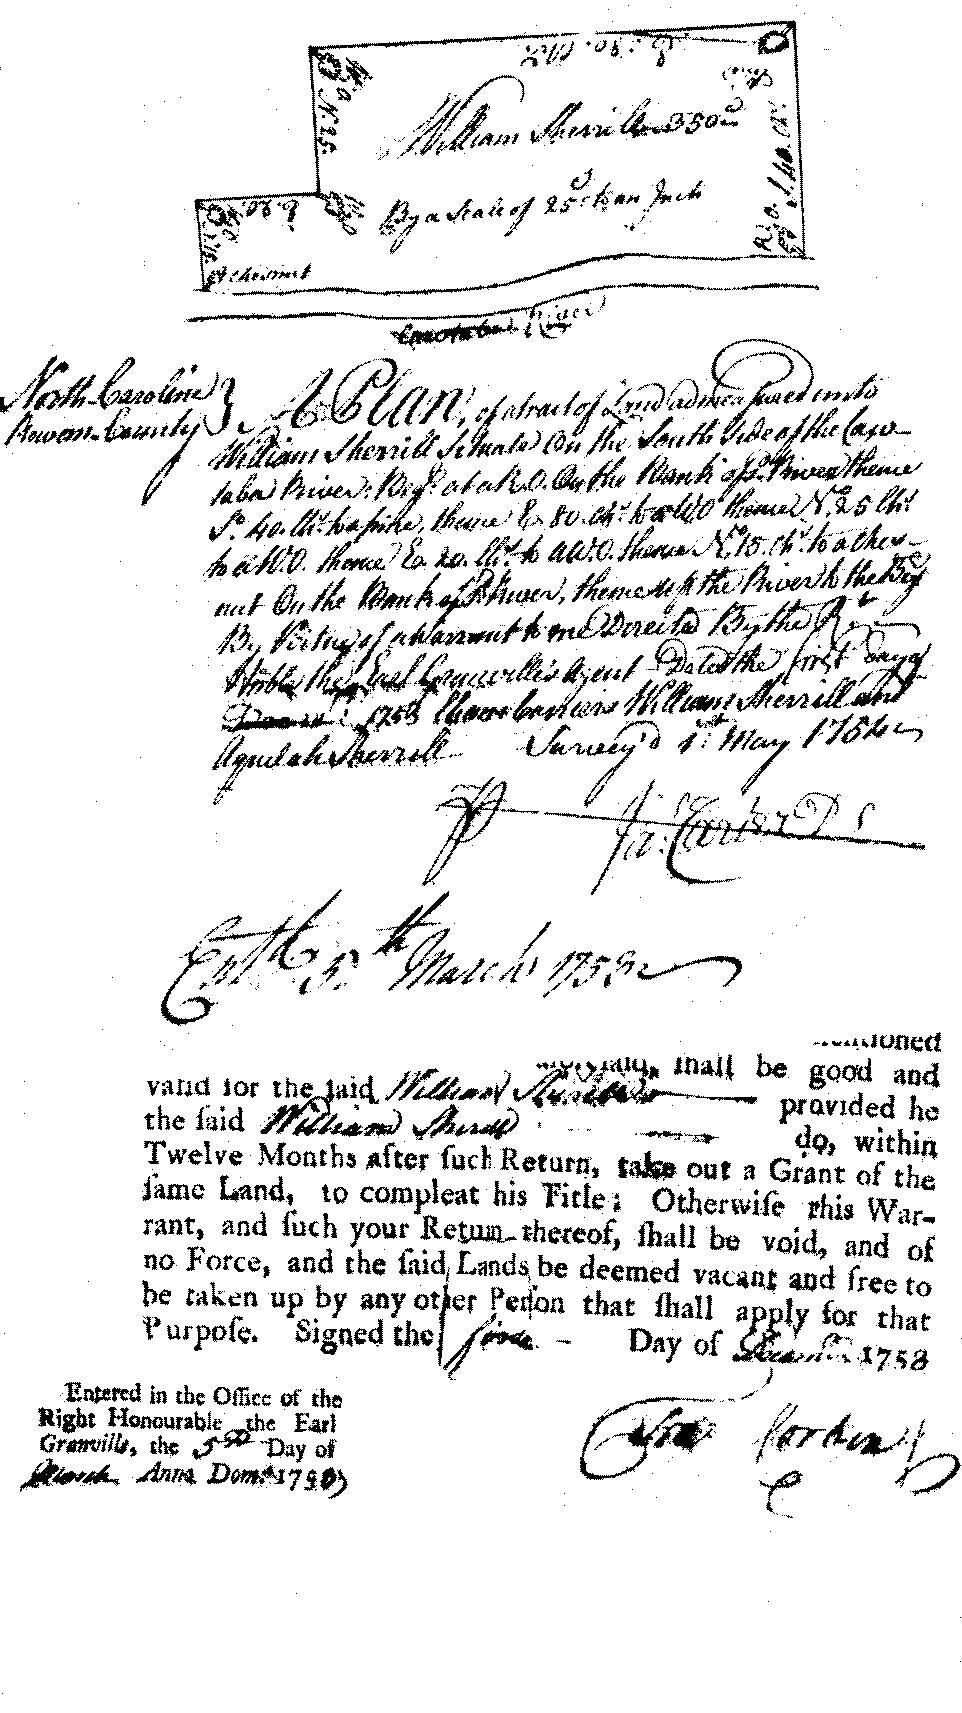 William Sherrill 350
By a Scale of 25 Ch an Inch
A Chesnut
River
North Carolina
Rowan County
A Plan, of a tract of Land admeasured unto
William Sherrill Situate On the South Side of the Caw-
taba River: Beg: at a R.O. On the Bank of sd. River thence
So. 40. Chs. to a pine, thence E. 80. Chs. to a W O thence No. 25 Chs.
to a W.O. thence Ea. 20. Chs. to a W.O. thence No. 15. Chs. to a Ches-
nut On the Bank of sd. River, thence up the River to the Beg
By Virtue of a Warrant to me Directed By the Rt.
Honble. the Earl Granvilles Agent Dated the first Day of
1753 Chain Carriers William Sherrill and
Aquilah Sherrill Survey'd 1st May 1754
P Ja: Carter D S
Entd. 5th March 1753
and, shall be good and
valid for the said William Sherrill
provided he
the said William Sherill
do, within
Twelve Months after such Return, take out a Grant of the
same Land, to compleat his Title; Otherwise this War-
rant, and such your Return thereof, shall be void, and of
no Force, and the said Lands be deemed vacant and free to
be taken up by any other Person that shall apply for that
Purpose. Signed the first Day of 1753
Entered in the Office of the
Right Honourable the Earl
Granville, the 5th Day of
March Anno Dom: 1753
Fra: Corbin